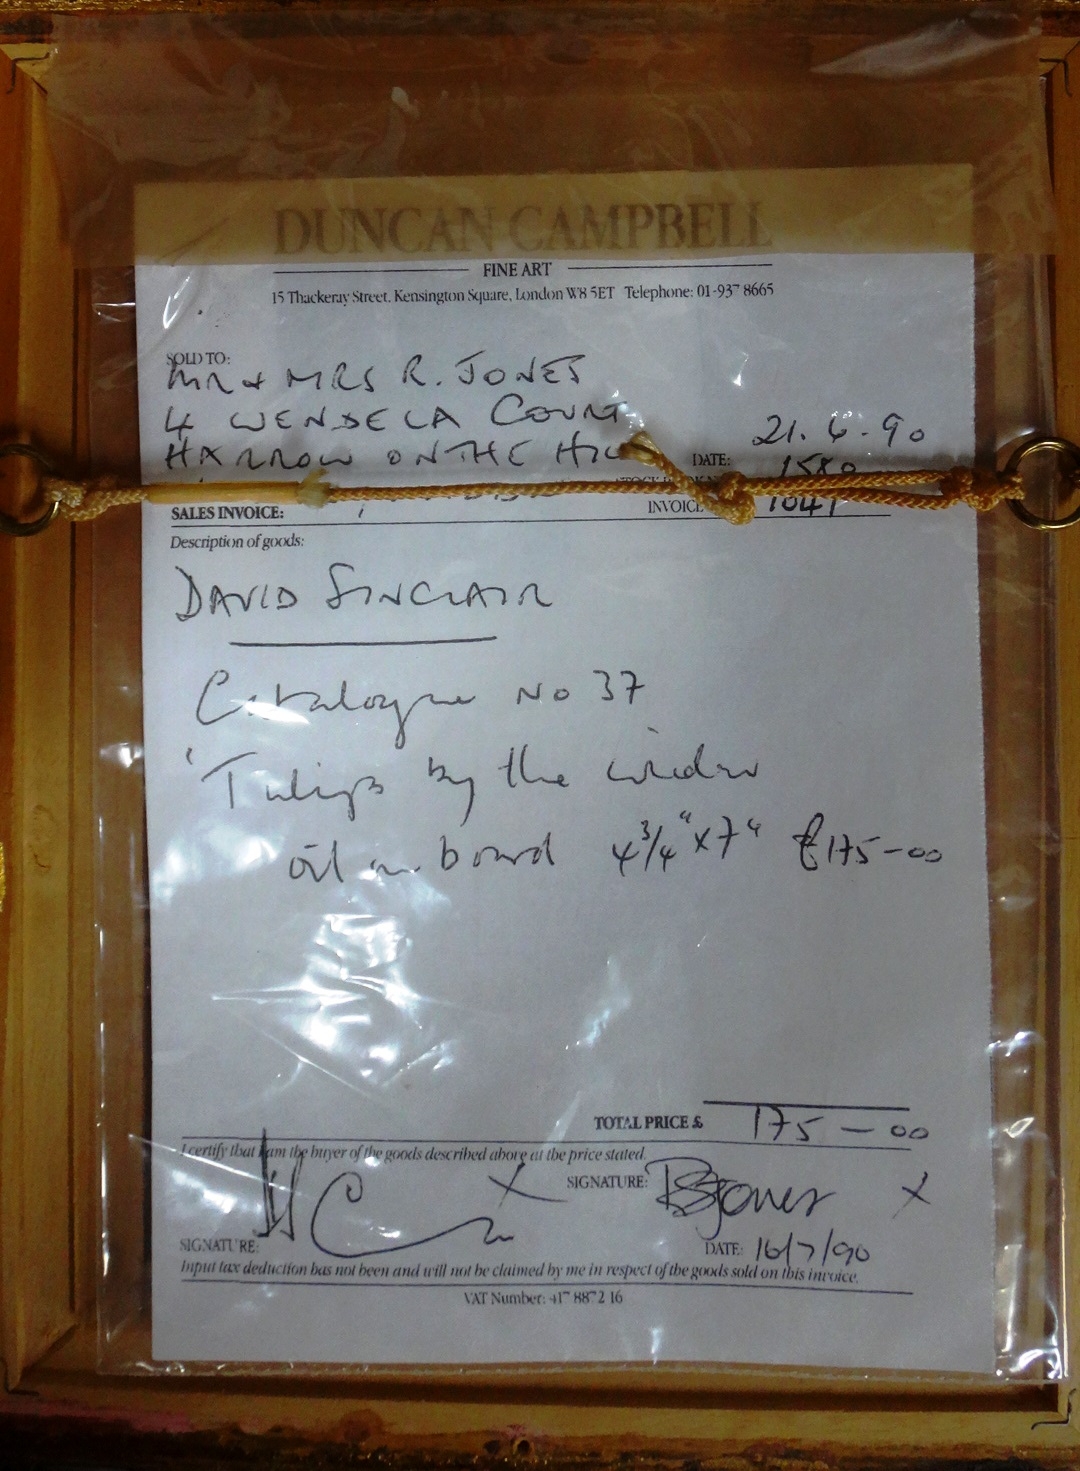 DUNCAN CAMPBELL
FINE ART
15 Thackeray Street, Kensington Square, London W8 5ET Telephone: 01-937 8665
SOLD TO:
MR & MRS R. JONES
4 WENDELA COURT
HARROW ON THE HILL
21.6.90
DATE:
1580
SALES INVOICE:
INVOICE
1041
Description of goods:
DAVID SINCLAIR
Catalogue No 37
'Tulips by the window
oil on board 4 3/4" x 7" £175-00
TOTAL PRICE £ 175-00
I certify that I am the buyer of the goods described above at the price stated.
SIGNATURE: X SIGNATURE: BJones X
DATE: 16/7/90
Input tax deduction has not been and will not be claimed by me in respect of the goods sold on this invoice.
VAT Number: 417 8872 16